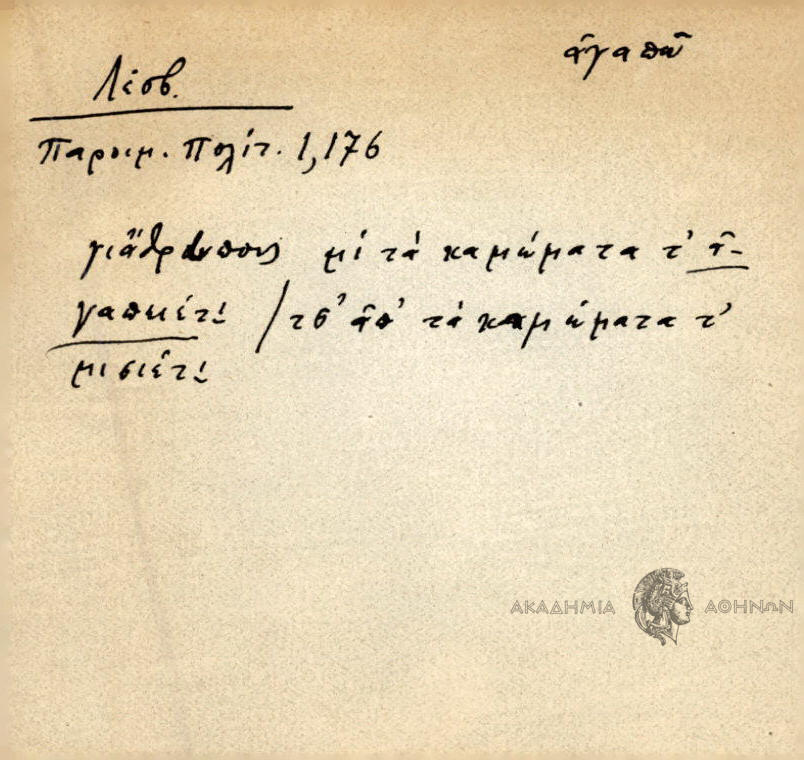 ἀγαπῶ
Λέσβ.
Παροιμ. Πολίτ. 1,176
γιἄθρουπους μὶ τὰ καμώματα τ' ἀ-
γαπιέτι / τσ' ἀπ' τὰ καμώματα τ'
μισιέτι
ΑΚΑΔΗΜΙΑ ΑΘΗΝΩΝ